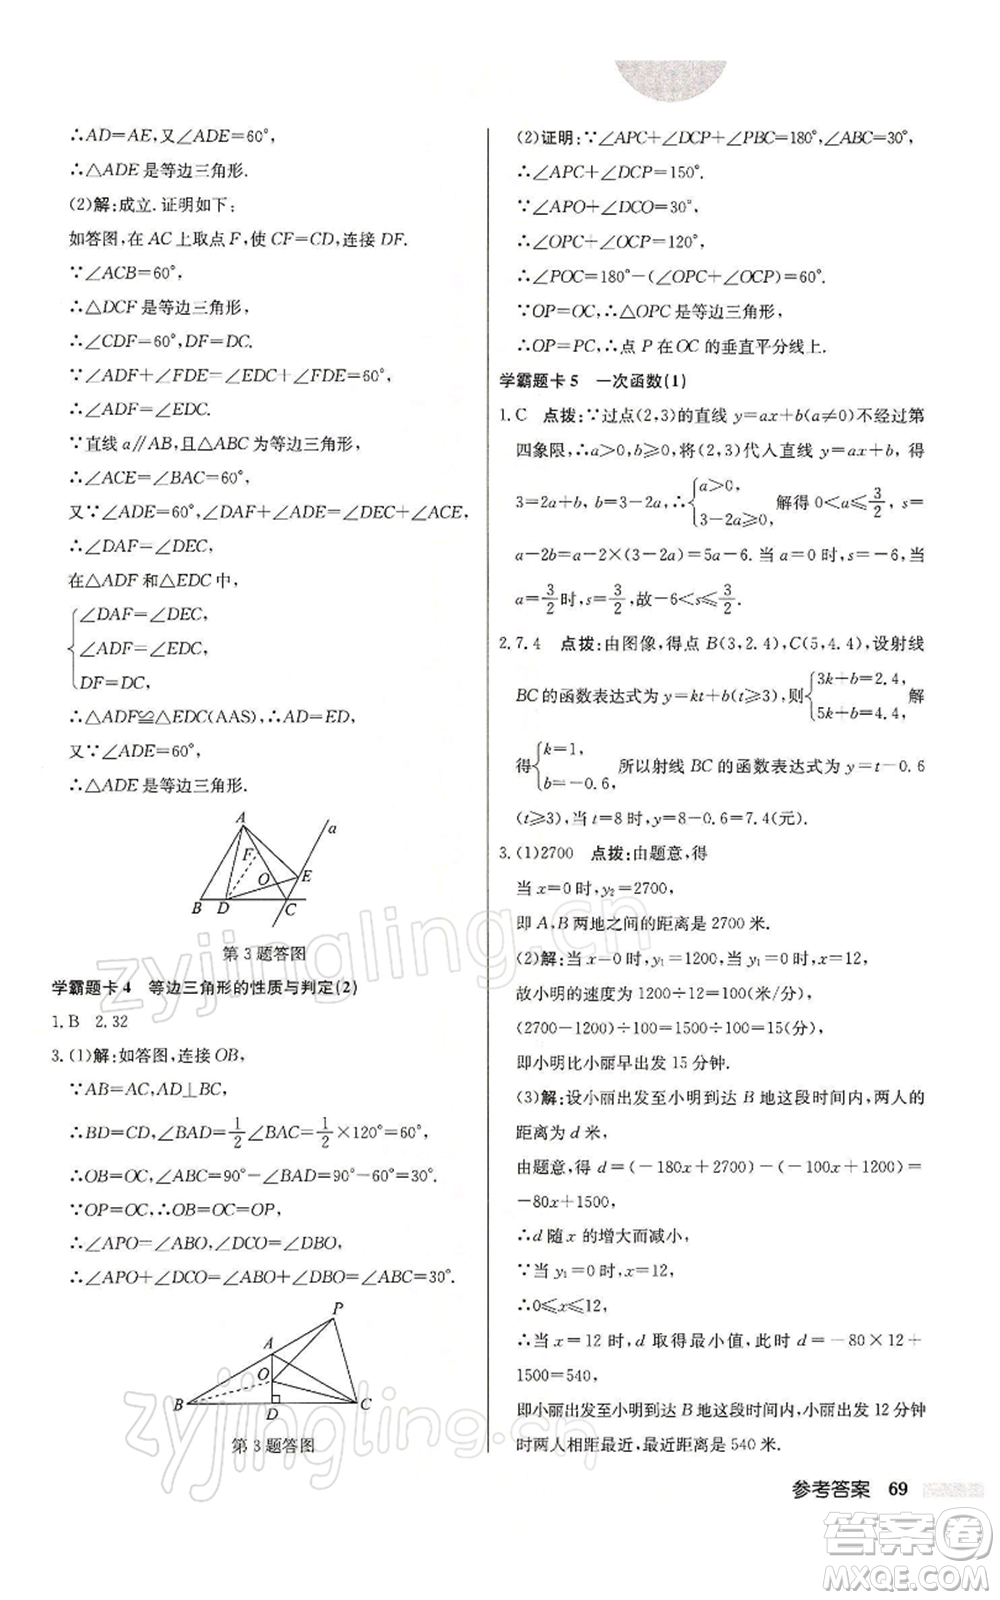 ∴AD=AE,又∠ADE=60°,
∴△ADE是等边三角形.
(2)解:成立.证明如下:
如答图,在AC上取点F,使CF=CD,连接DF.
∵∠ACB=60°,
∴△DCF是等边三角形,
∴∠CDF=60°,DF=DC.
∵∠ADF+∠FDE=60°,∠FDE+∠EDC=60°,
∴∠ADF=∠EDC.
∵直线a∥AB,且△ABC为等边三角形,
∴∠ACE=∠BAC=60°,
又∵∠ADE=60°,∠DAF+∠ADE=∠DEC+∠ACE,
∴∠DAF=∠DEC,
在△ADF和△EDC中,
∠DAF=∠DEC,
∠ADF=∠EDC,
DF=DC,
∴△ADF≌△EDC(AAS),∴AD=ED,
又∵∠ADE=60°,
∴△ADE是等边三角形.
A a
F
O E
B D C
第3题答图
学霸题卡4 等边三角形的性质与判定(2)
1.B 2.32
3.(1)解:如答图,连接OB,
∵AB=AC,AD⊥BC,
∴BD=CD,∠BAD=1/2∠BAC=1/2×120°=60°,
∴OB=OC,∠ABC=90°-∠BAD=90°-60°=30°.
∵OP=OC,∴OB=OC=OP,
∴∠APO=∠ABO,∠DCO=∠DBO,
∴∠APO+∠DCO=∠ABO+∠DBO=∠ABC=30°.
P
A
O
B D C
第3题答图
(2)证明:∵∠APC+∠DCP+∠PBC=180°,∠ABC=30°,
∴∠APC+∠DCP=150°.
∵∠APO+∠DCO=30°,
∴∠OPC+∠OCP=120°,
∴∠POC=180°-(∠OPC+∠OCP)=60°.
∵OP=OC,∴△OPC是等边三角形,
∴OP=PC,∴点P在OC的垂直平分线上.
学霸题卡5 一次函数(1)
1.C 点拨:∵过点(2,3)的直线y=ax+b(a≠0)不经过第
四象限,∴a>0,b≥0,将(2,3)代入直线y=ax+b,得
3=2a+b,b=3-2a,∴{a>0, 3-2a≥0, 解得0<a≤3/2,s=
a-2b=a-2×(3-2a)=5a-6.当a=0时,s=-6,当
a=3/2时,s=3/2,故-6<s≤3/2.
2.7.4 点拨:由图像,得点B(3,2.4),C(5,4.4),设射线
BC的函数表达式为y=kt+b(t≥3),则{3k+b=2.4, 5k+b=4.4, 解
得{k=1, b=-0.6, 所以射线BC的函数表达式为y=t-0.6
(t≥3),当t=8时,y=8-0.6=7.4(元).
3.(1)2700 点拨:由题意,得
当x=0时,y₂=2700,
即A,B两地之间的距离是2700米.
(2)解:当x=0时,y₁=1200,当y₁=0时,x=12,
故小明的速度为1200÷12=100(米/分),
(2700-1200)÷100=1500÷100=15(分),
即小明比小丽早出发15分钟.
(3)解:设小丽出发至小明到达B地这段时间内,两人的
距离为d米,
由题意,得d=(-180x+2700)-(-100x+1200)=
-80x+1500,
∴d随x的增大而减小,
∵当y₁=0时,x=12,
∴0≤x≤12,
∴当x=12时,d取得最小值,此时d=-80×12+
1500=540,
即小丽出发至小明到达B地这段时间内,小丽出发12分钟
时两人相距最近,最近距离是540米.
参考答案 69
zyjingling.com
zyjingling.com
答案卷
MXQE.COM